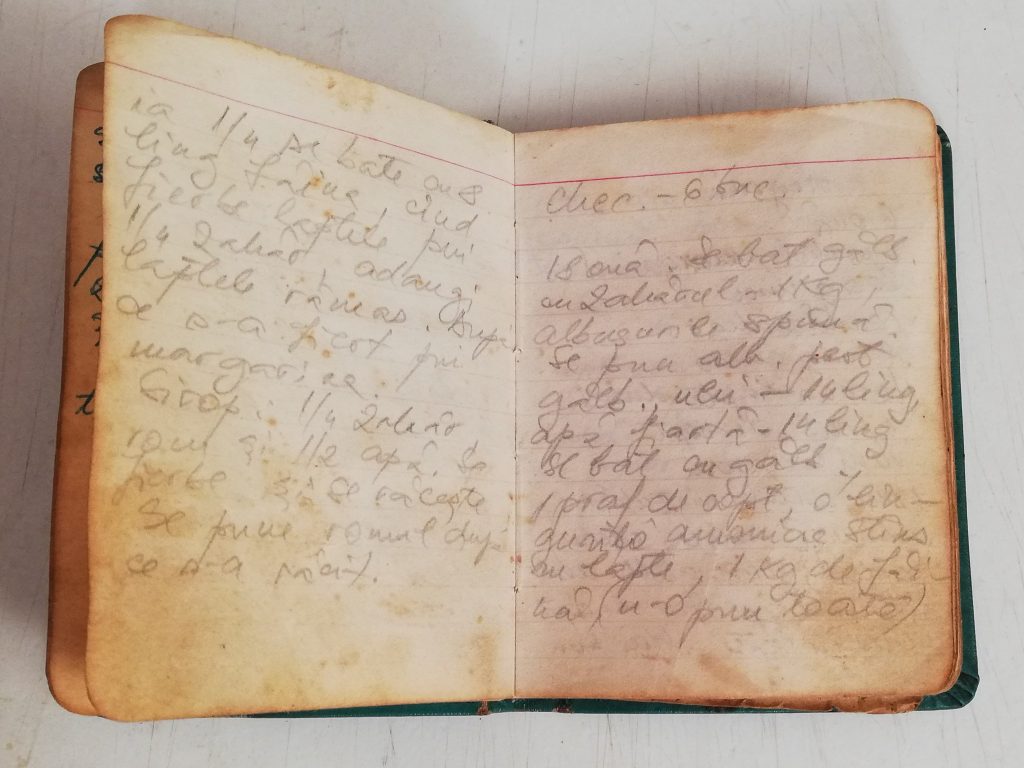 ia 1/4 se bate cu 8
ling făina când
fierbe laptele pui
1/4 zahăr adaugi
laptele rămas. După
ce s-a fiert pui
margarina
Sirop: 1/4 zahăr
rom și 1/2 apă. Se
fierbe și se răcește
Se pune romul după
ce s-a răcit.
Chec. - 6 buc.
18 ouă. Se bat gălb.
cu zahărul - 1 Kg,
albușurile spumă.
Se pun alb. peste
gălb., ulei - 14 ling
apă fiartă - 14 ling
Se bat cu gălb.
1 praf de copt, o lin-
guriță amoniac stins
cu lapte, 1 Kg de făi-
nă (n-o pun toată)